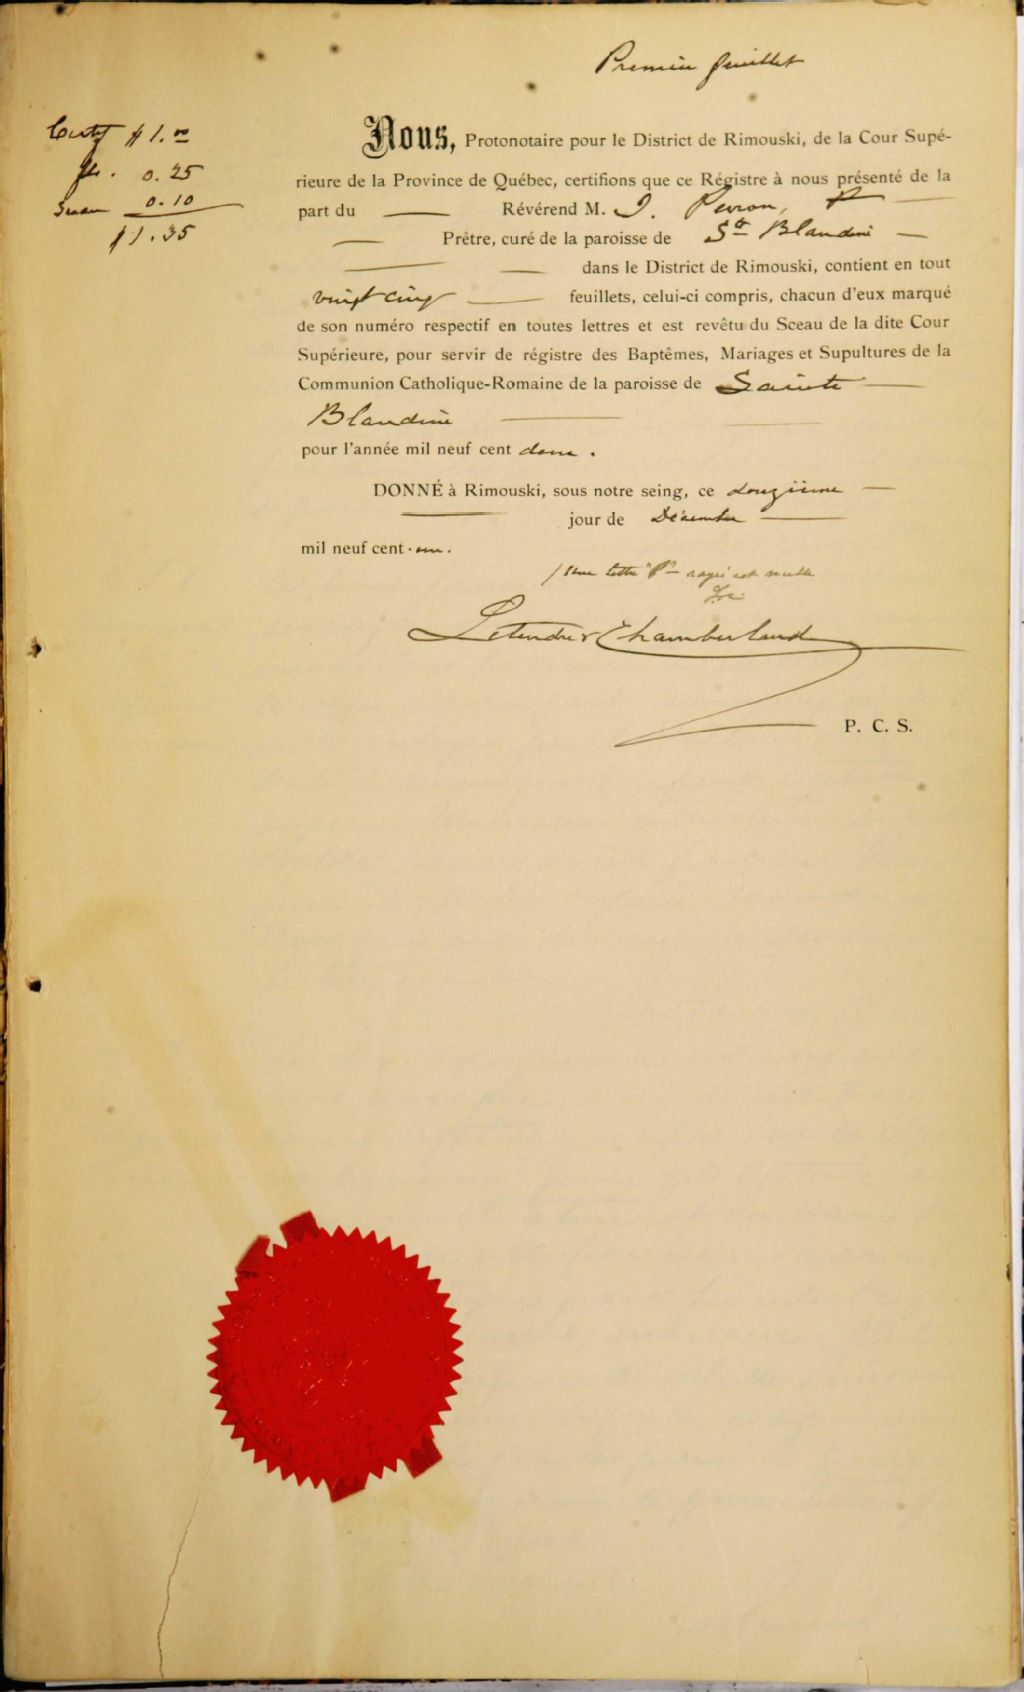 Premier feuillet
Certif $1.00
fts. 0.25
Sceau 0.10
$1.35
Nous, Protonotaire pour le District de Rimouski, de la Cour Supé-
rieure de la Province de Québec, certifions que ce Régistre à nous présenté de la
part du — Révérend M. J. Perron, P —
— Prêtre, curé de la paroisse de Ste Blandine —
— — dans le District de Rimouski, contient en tout
vingt cinq — feuillets, celui-ci compris, chacun d'eux marqué
de son numéro respectif en toutes lettres et est revêtu du Sceau de la dite Cour
Supérieure, pour servir de régistre des Baptêmes, Mariages et Supultures de la
Communion Catholique-Romaine de la paroisse de Sainte —
Blandine —
pour l'année mil neuf cent deux.
DONNÉ à Rimouski, sous notre seing, ce douzième —
— jour de Décembre —
mil neuf cent un.
/ Une lettre "P" rayée est nulle
Letendre & Chamberland
P. C. S.